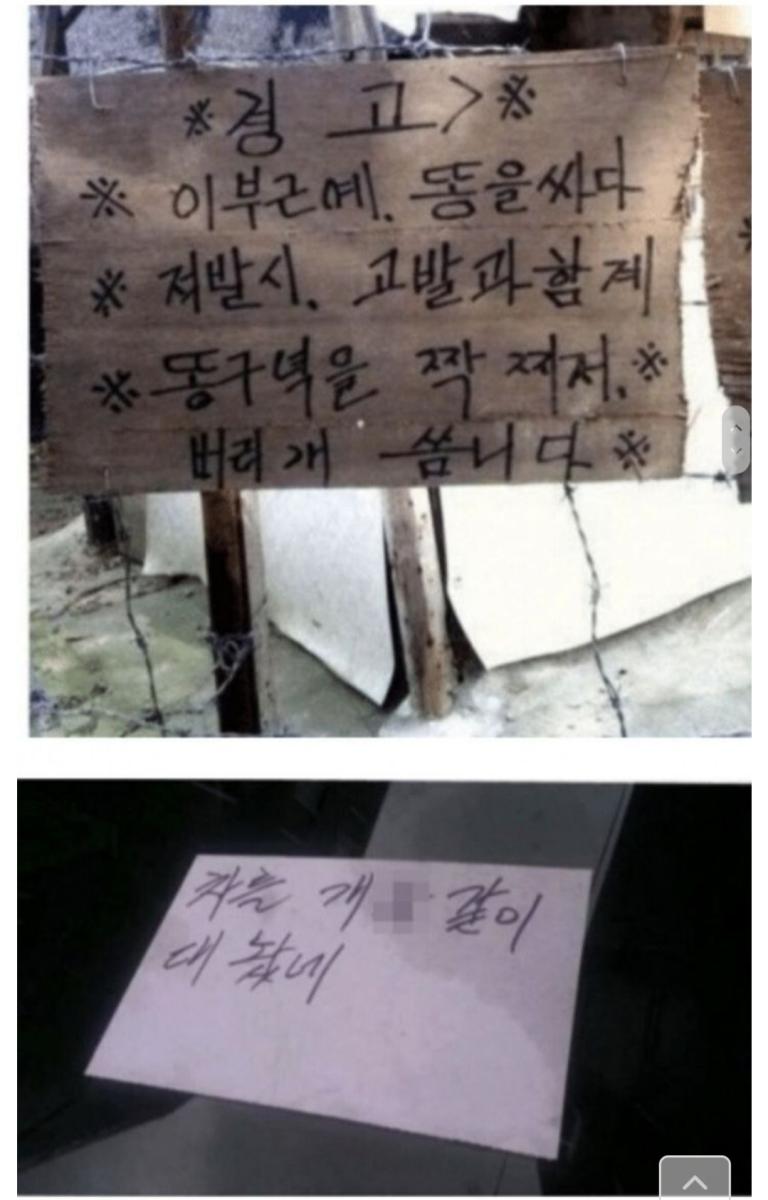 ※경 고>※
※ 이부근에. 똥을싸다
※ 저발시. 고발과함게
※ 똥구녁을 짝 찌저.※
버리개 씀니다※
차를 개 같이
대 놨네